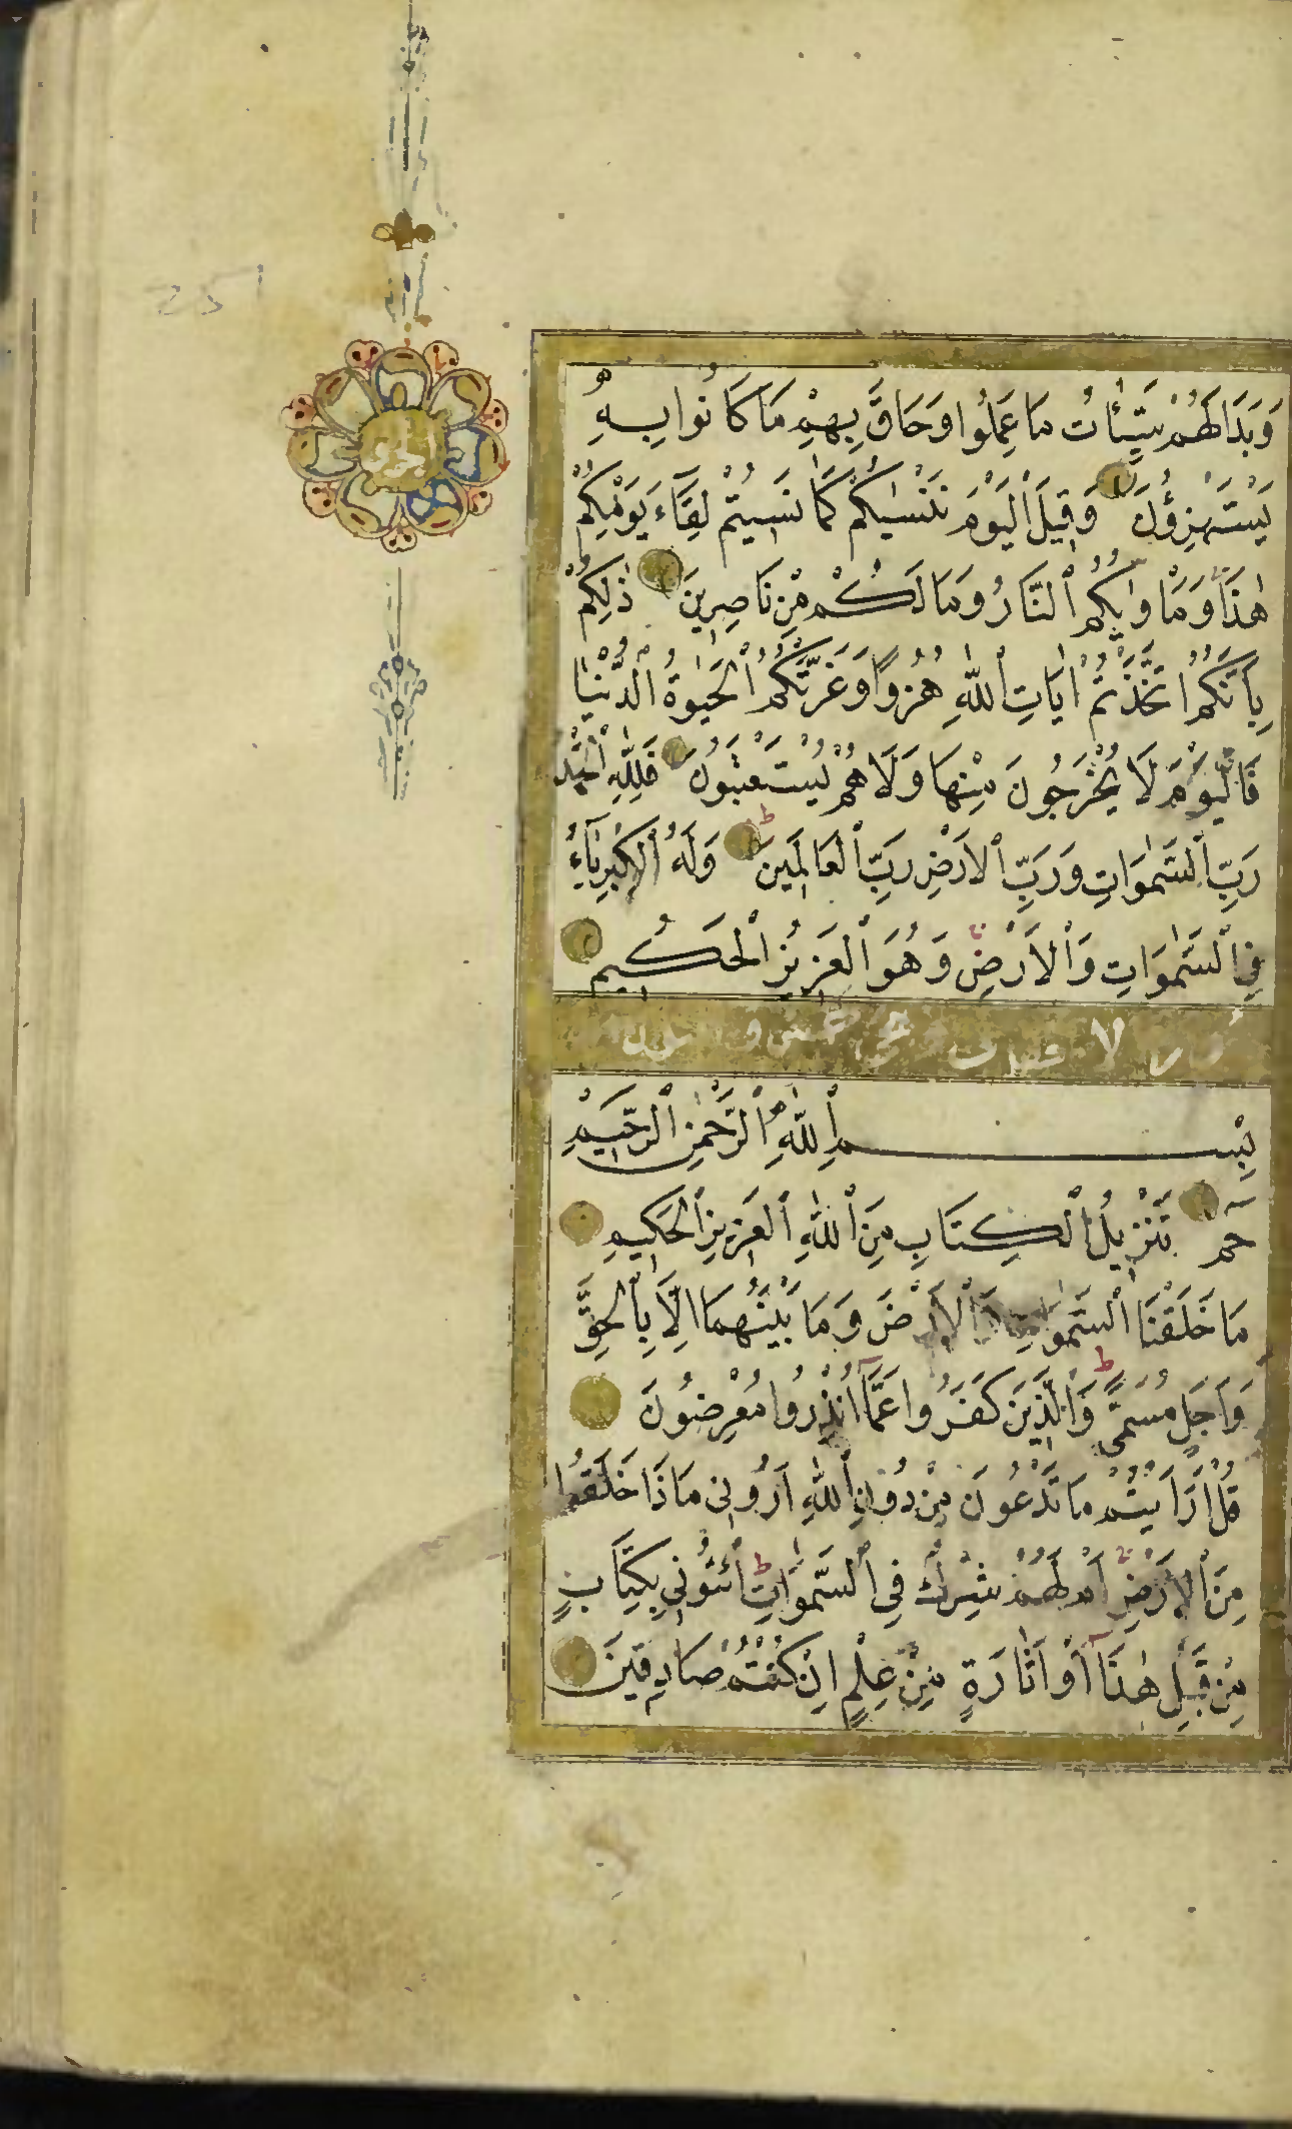 وَبَدَا لَهُمْ سَيِّـَٔاتُ مَا عَمِلُوا وَحَاقَ بِهِمْ مَا كَانُوا بِهِ
يَسْتَهْزِؤُنَ وَقِيلَ ٱلْيَوْمَ نَنْسٰيكُمْ كَمَا نَسِيتُمْ لِقَآءَ يَوْمِكُمْ
هٰذَا وَمَأْوٰيكُمُ ٱلنَّارُ وَمَا لَكُمْ مِنْ نَاصِرِينَ ذٰلِكُمْ
بِاَنَّكُمُ اتَّخَذْتُمْ اٰيَاتِ ٱللّٰهِ هُزُوًا وَغَرَّتْكُمُ ٱلْحَيٰوةُ ٱلدُّنْيَا
فَالْيَوْمَ لَا يُخْرَجُونَ مِنْهَا وَلَا هُمْ يُسْتَعْتَبُونَ فَلِلّٰهِ ٱلْحَمْدُ
رَبِّ ٱلسَّمٰوَاتِ وَرَبِّ ٱلْاَرْضِ رَبِّ ٱلْعَالَمِينَ وَلَهُ ٱلْكِبْرِيَآءُ
فِي ٱلسَّمٰوَاتِ وَٱلْاَرْضِ وَهُوَ ٱلْعَزِيزُ ٱلْحَكِيمُ
بِسْمِ ٱللّٰهِ ٱلرَّحْمٰنِ ٱلرَّحِيمِ
حٰمٓ تَنْزِيلُ ٱلْكِتَابِ مِنَ ٱللّٰهِ ٱلْعَزِيزِ ٱلْحَكِيمِ
مَا خَلَقْنَا ٱلسَّمٰوَاتِ وَٱلْاَرْضَ وَمَا بَيْنَهُمَا اِلَّا بِٱلْحَقِّ
وَاَجَلٍ مُسَمًّى وَٱلَّذِينَ كَفَرُوا عَمَّآ اُنْذِرُوا مُعْرِضُونَ
قُلْ اَرَاَيْتُمْ مَا تَدْعُونَ مِنْ دُونِ ٱللّٰهِ اَرُونِي مَاذَا خَلَقُوا
مِنَ ٱلْاَرْضِ اَمْ لَهُمْ شِرْكٌ فِي ٱلسَّمٰوَاتِ ٱئْتُونِي بِكِتَابٍ
مِنْ قَبْلِ هٰذَآ اَوْ اَثَارَةٍ مِنْ عِلْمٍ اِنْ كُنْتُمْ صَادِقِينَ